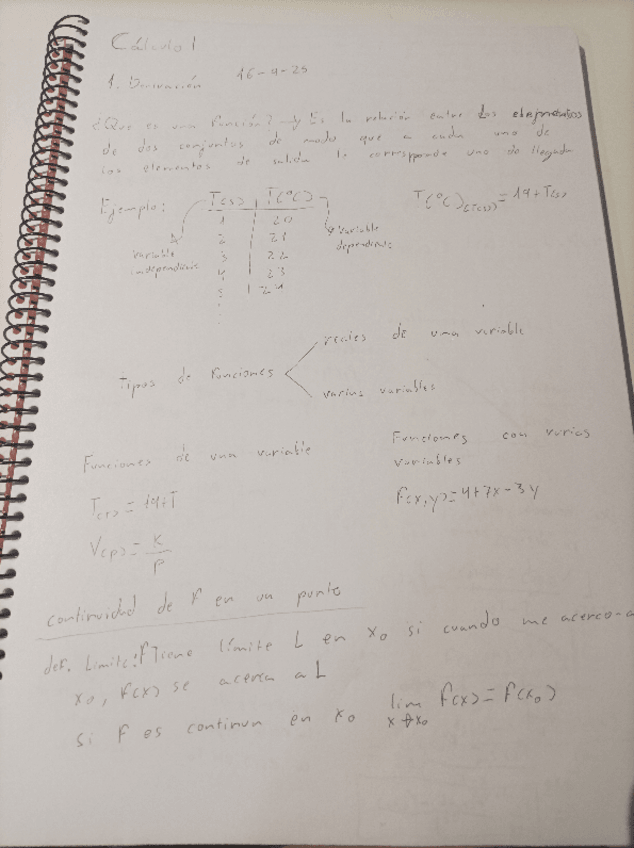 Cálculo 1
1. Derivación 16-9-25
¿Que es una función? → Es la relación entre los elementos
de dos conjuntos de modo que a cada uno de
los elementos de salida le corresponde uno de llegada
Ejemplo: T(s) T(°C) T(°C)(T(s)) = 19+T(s)
1 20
2 21
3 22
4 23
5 24
variable independiente
variable dependiente
Tipos de funciones
reales de una variable
varias variables
Funciones de una variable
T(s) = 19+T
V(P) = K/P
Funciones con varias
variables
f(x,y)=4+7x-3y
continuidad de f en un punto
def. Limite: f Tiene límite L en x₀ si cuando me acerco a
x₀, f(x) se acerca a L
si f es continua en x₀ lim x→x₀ f(x) = f(x₀)